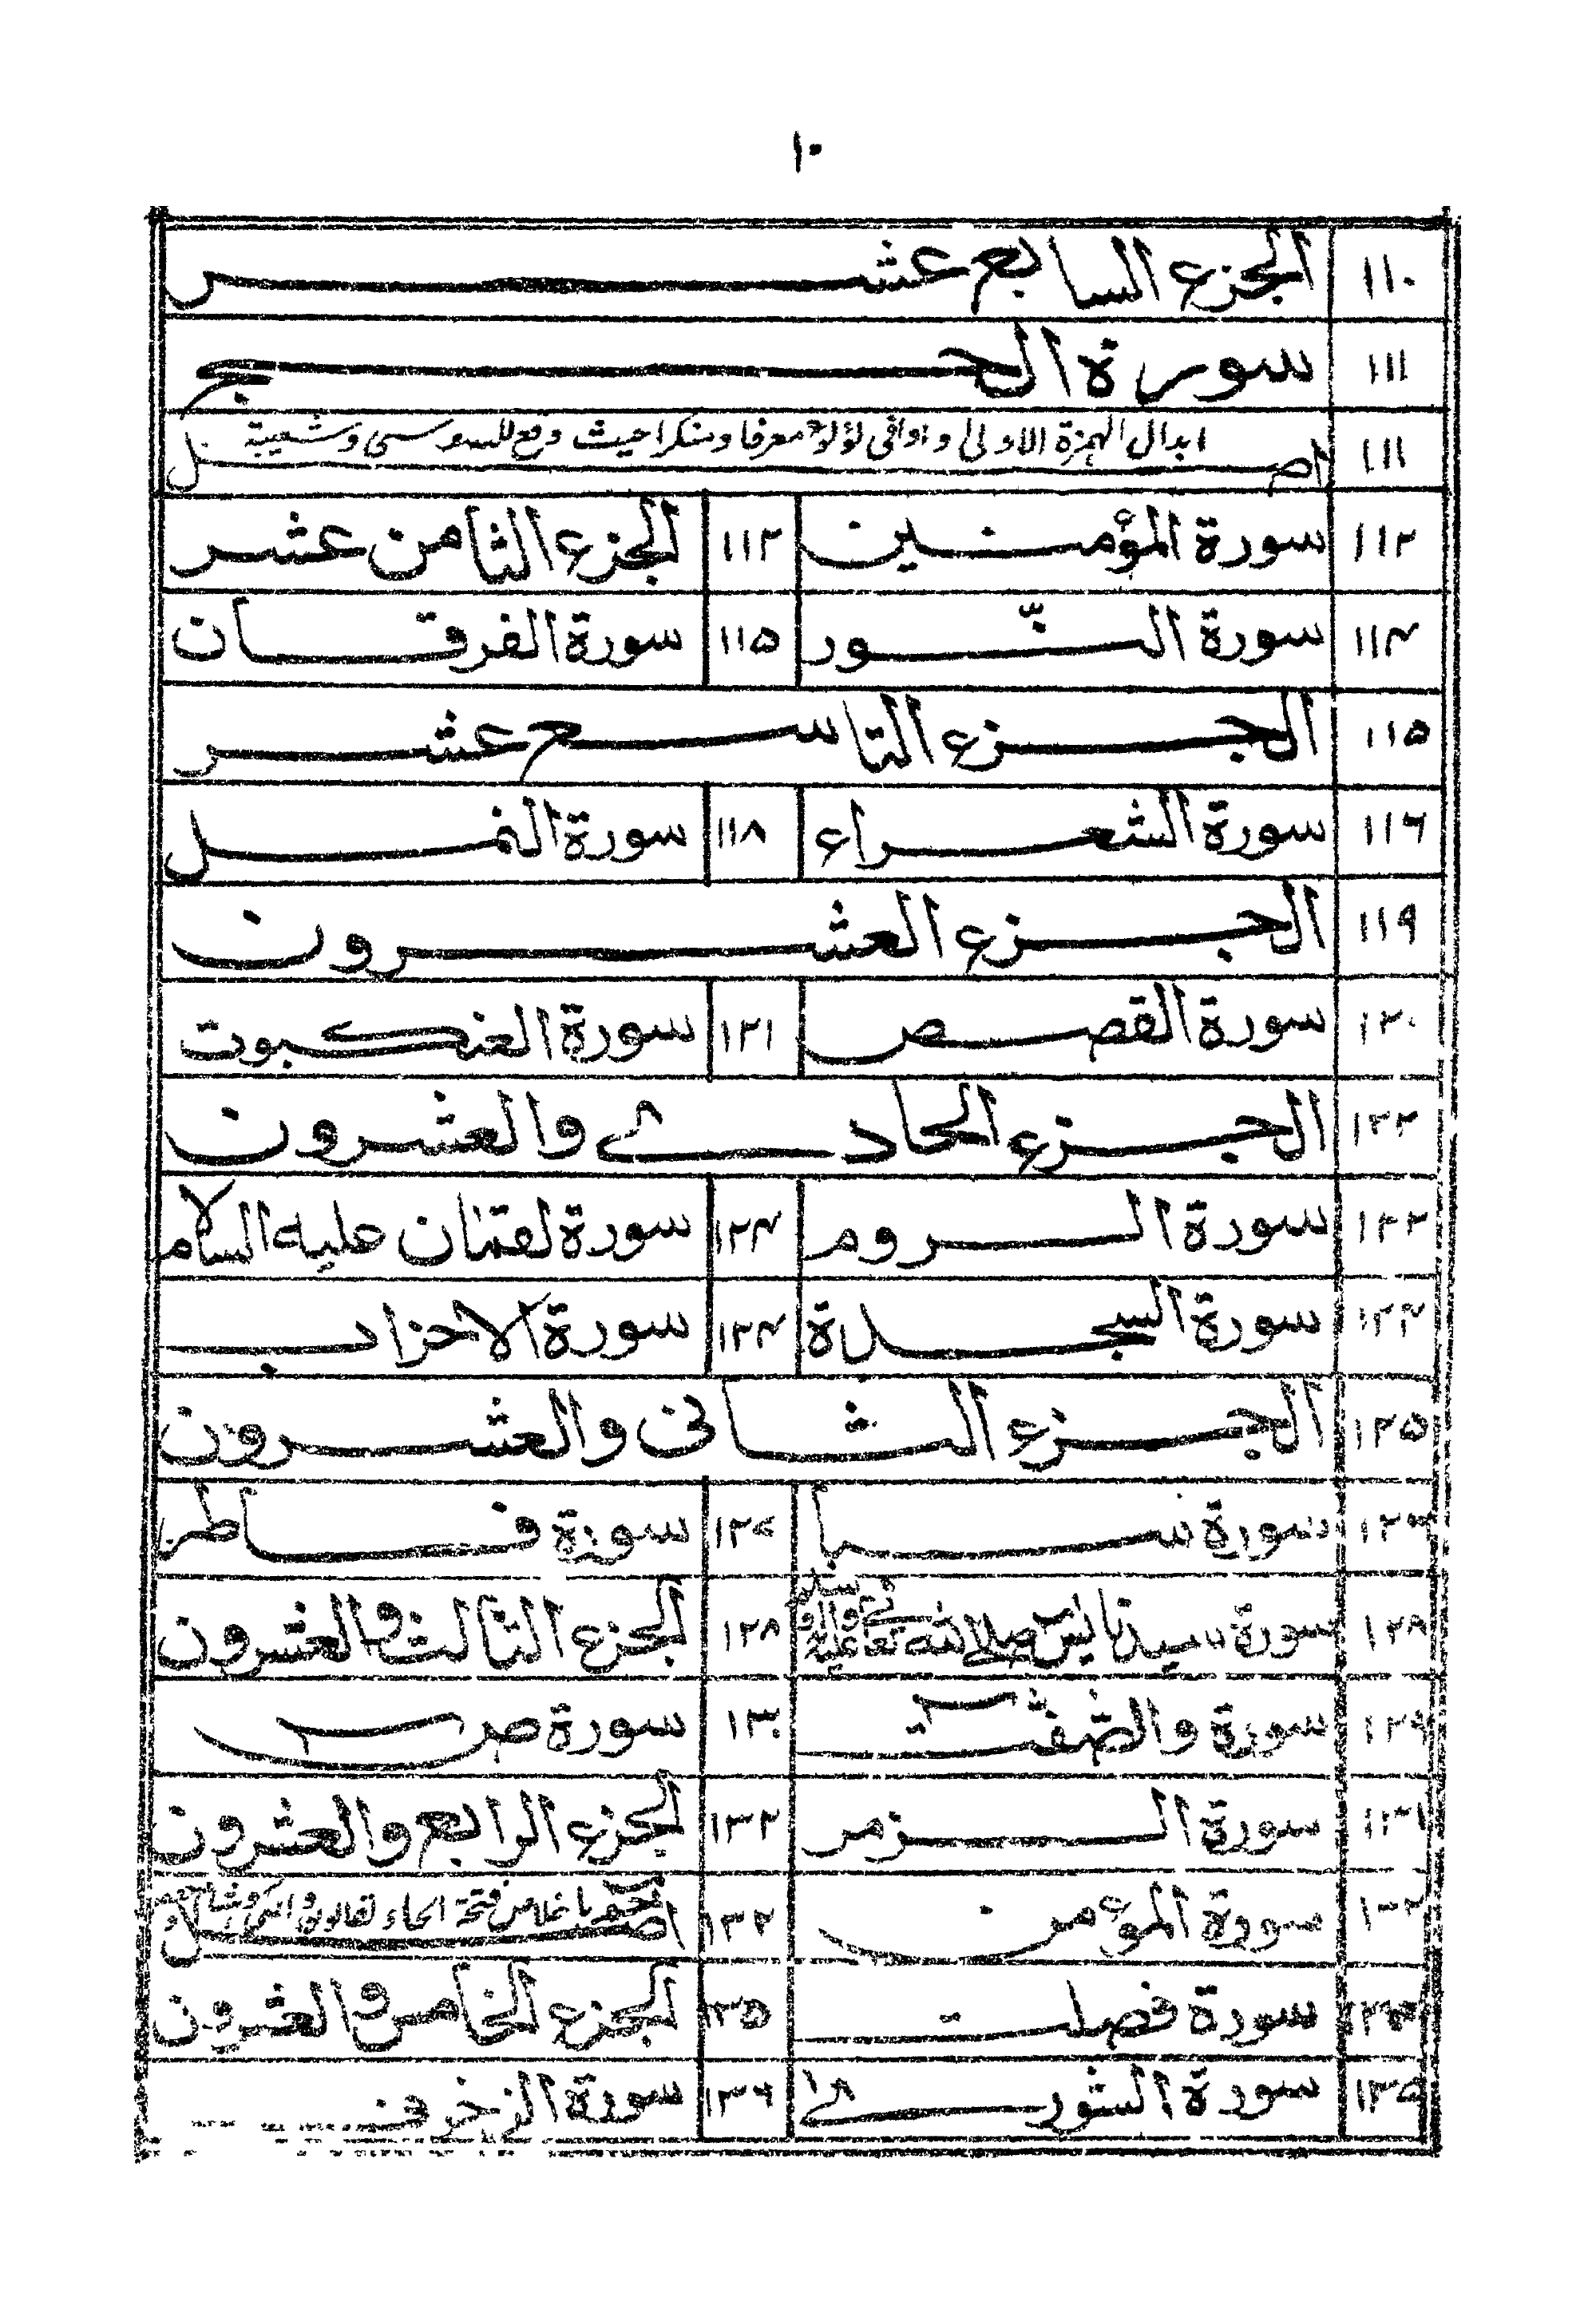 ١٠
١١٠ الجزء السابع عشر
١١١ سورة الحج
١١١ اصل ابدال الهمزة الاولى واوا فى لؤلؤ معرفا ومنكرا حيث وقع للسوسى وشعيبة
١١٢ سورة المؤمنين ١١٢ الجزء الثامن عشر
١١٤ سورة النّور ١١٥ سورة الفرقان
١١٥ الجزء التاسع عشر
١١٦ سورة الشعراء ١١٨ سورة النمل
١١٩ الجزء العشرون
١٢٠ سورة القصص ١٢١ سورة العنكبوت
١٢٢ الجزء الحادى والعشرون
١٢٢ سورة الروم ١٢٤ سورة لقمان عليه السلام
١٢٤ سورة السجدة ١٢٤ سورة الاحزاب
١٢٥ الجزء الثانى والعشرون
سورة سبا ١٢٧ سورة فاطر
١٢٨ سورة سيدنا يٰسٓ صلى الله تعالى عليه واله وسلم ١٢٨ الجزء الثالث والعشرون
١٢٩ سورة والصّٰفّٰت ١٣٠ سورة صٓ
١٣١ سورة الزمر ١٣٢ الجزء الرابع والعشرون
١٣٢ سورة المؤمن ١٣٢ اصل فتحة الحاء لقالون
سورة فصلت ١٣٥ الجزء الخامس والعشرون
سورة الشورىٰ ١٣٦ سورة الزخرف